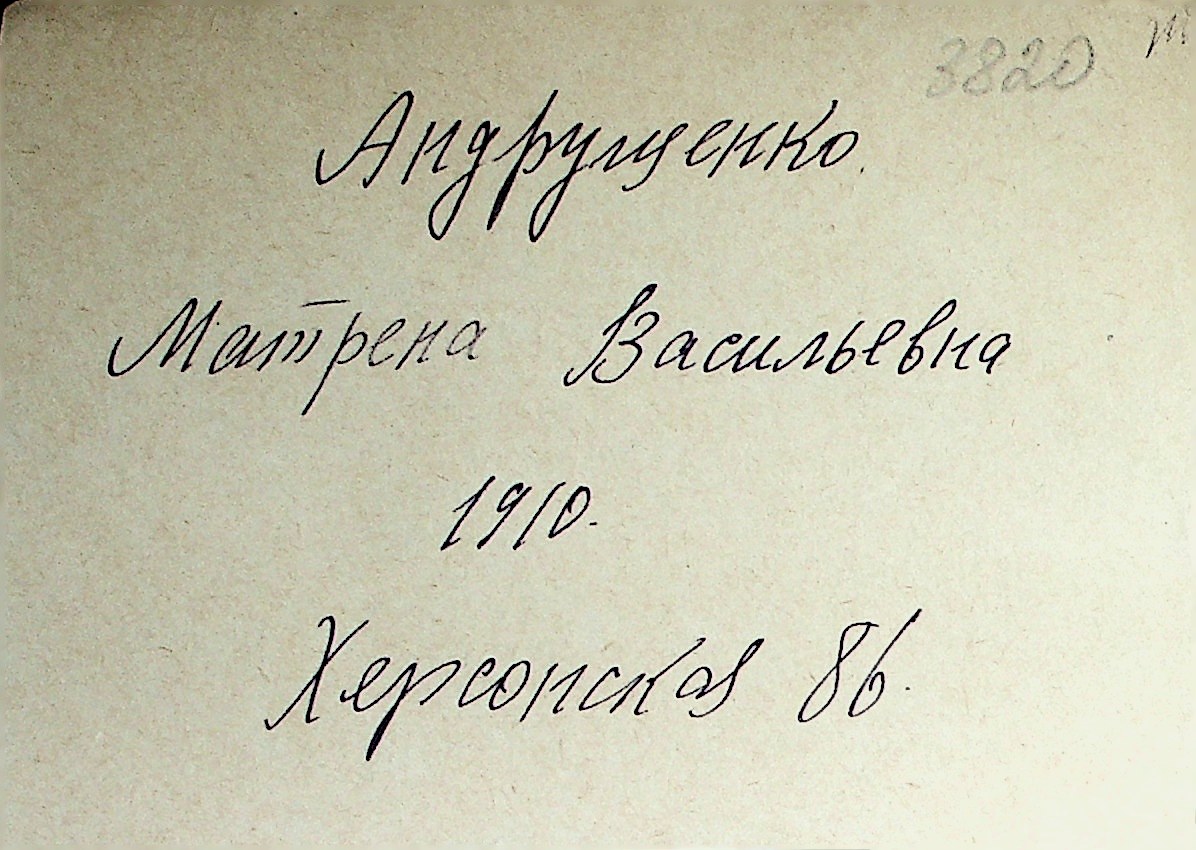 3820
Андрущенко.
Матрена Васильевна
1910.
Херсонская 86.